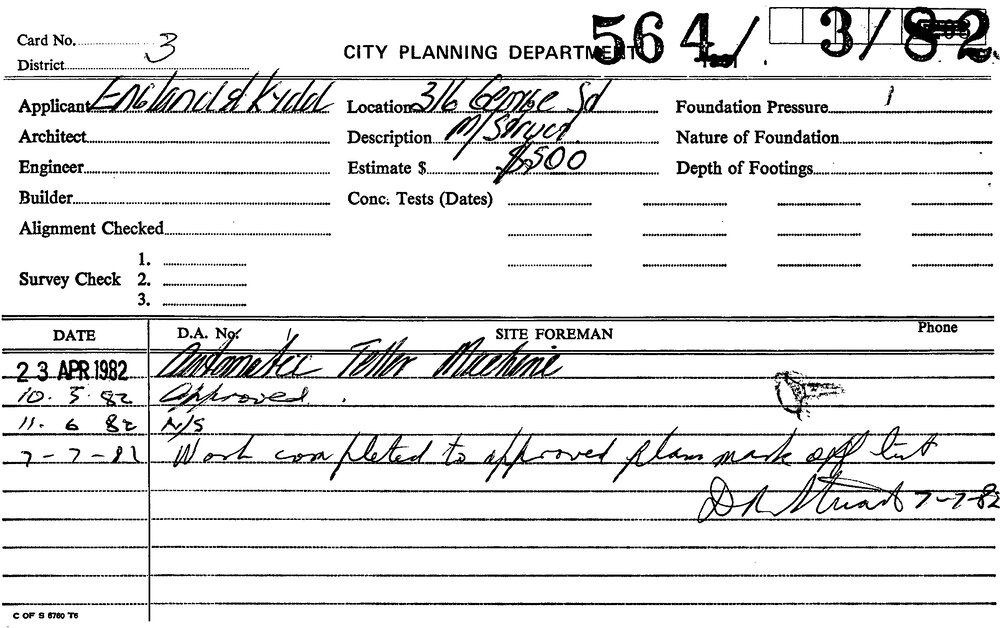 Card No. 3
564/ 3/82
CITY PLANNING DEPARTMENT
District
Applicant England & Kydd Location 316 George Sd Foundation Pressure
Architect Description M/Struct Nature of Foundation
Engineer Estimate $ $500 Depth of Footings
Builder Conc. Tests (Dates)
Alignment Checked
1.
Survey Check 2.
3.
DATE D.A. No. SITE FOREMAN Phone
23 APR 1982 Automatic Teller Machine
10. 5. 82 Approved.
11. 6 82 N/S
7-7-82 Work completed to approved plans mark off list
D R Stuart 7-7-82
C OF S 6760 T6